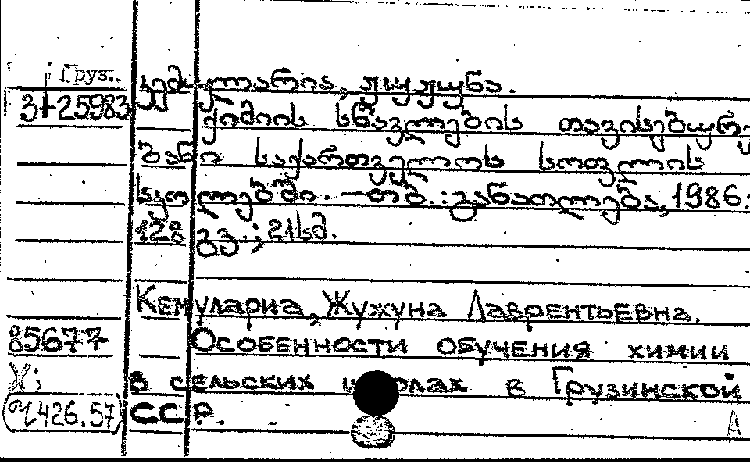 Груз.
კემულარია, ჟუჟუნა.
3-25983
ქიმიის სწავლების თავისებურე-
ბანი საქართველოს სოფლის
სკოლებში. — თბ.: განათლება, 1986.
128 გვ.; 21 სმ.
Кемулариа, Жужуна Лаврентьевна.
85677
Особенности обучения химии
в сельских школах в Грузинской
ССР.
426.57